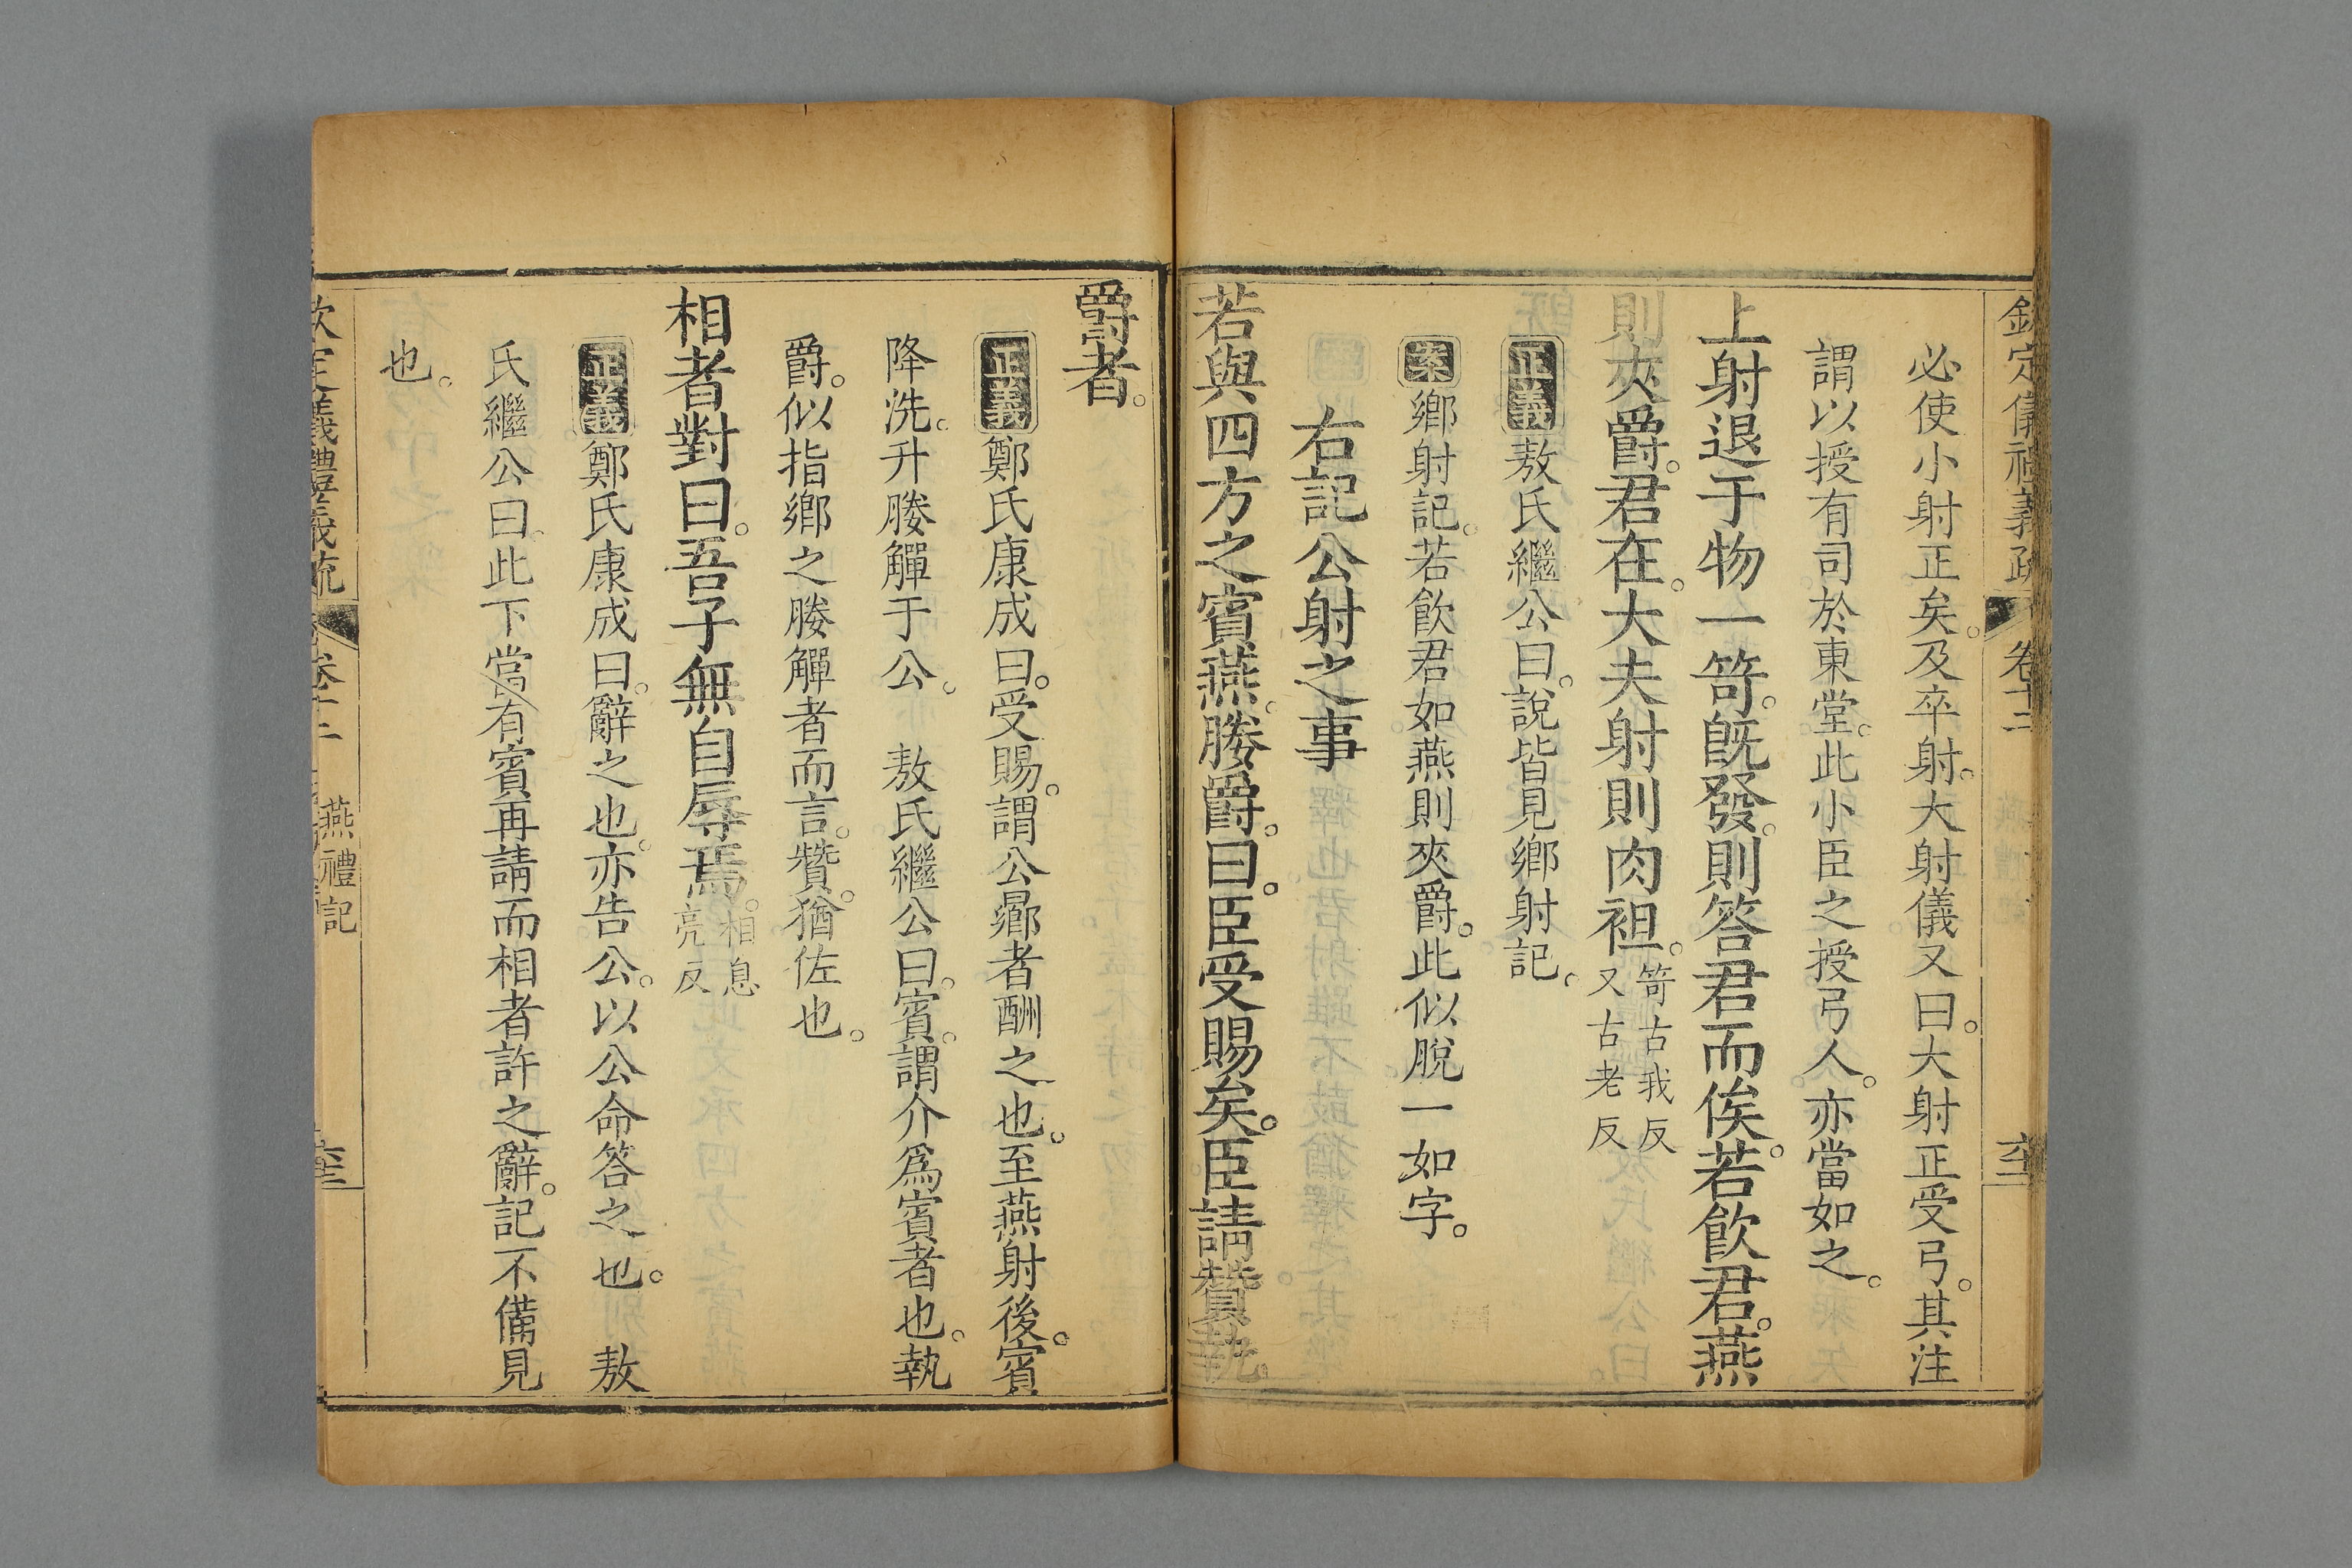 欽定儀禮義疏 卷十二
必使小射正矣。及卒射。大射儀又曰。大射正受弓。其注
謂以授有司於東堂。此小臣之授弓人。亦當如之。
上射退于物一笴。旣發。則答君而俟。若飮君。燕
則夾爵。君在。大夫射則肉袒。笴古我反
又古老反
正義敖氏繼公曰。說皆見鄉射記。
案鄉射記。若飮君如燕則夾爵。此似脫一如字。
右記公射之事
若與四方之賓燕。媵爵。曰。臣受賜矣。臣請贊執
爵者。
正義鄭氏康成曰。受賜。謂公曏者酬之也。至燕射後。賓
降洗。升媵觶于公。 敖氏繼公曰。賓。謂介爲賓者也。執
爵。似指鄉之媵觶者而言。贊。猶佐也。
相者對曰。吾子無自辱焉。相息
亮反
正義鄭氏康成曰。辭之也。亦告公。以公命答之也。 敖
氏繼公曰。此下當有賓再請而相者許之辭。記不備見
也。
欽定儀禮義疏 卷十二 燕禮記